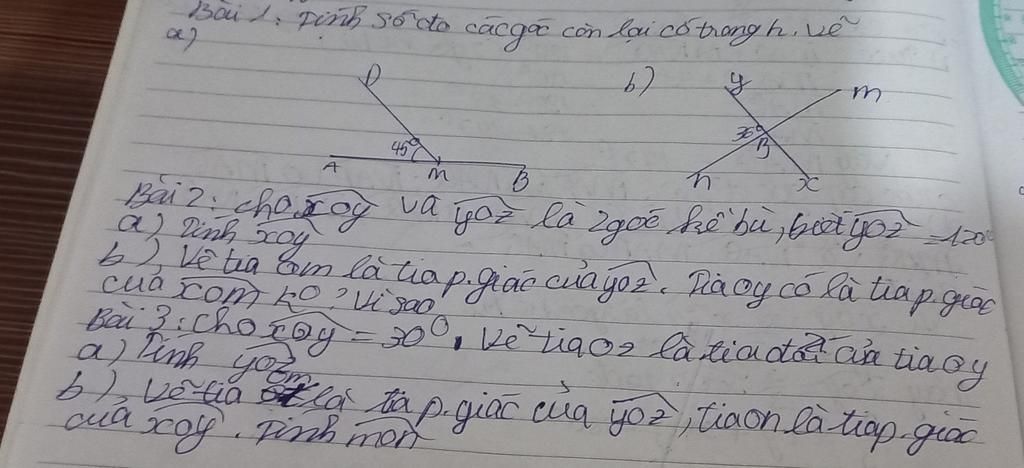 Bài 1: Tính số đo các góc còn lại có trong h. vẽ
a)
b)
D
45°
A M B
y m
36°
B
n x
Bài 2: cho xoy và yoz là 2 góc kề bù, biết yoz = 120°
a) Tính xoy
b) Vẽ tia om là tia p. giác của yoz. Tia oy có là tia p. giác
của xom ko? Vì sao
Bài 3: cho xoy = 30°. Vẽ tia oz là tia đối của tia oy
a) Tính yoz
b) Vẽ tia om là tia p. giác của yoz, tia on là tia p. giác
của xoy. Tính mon